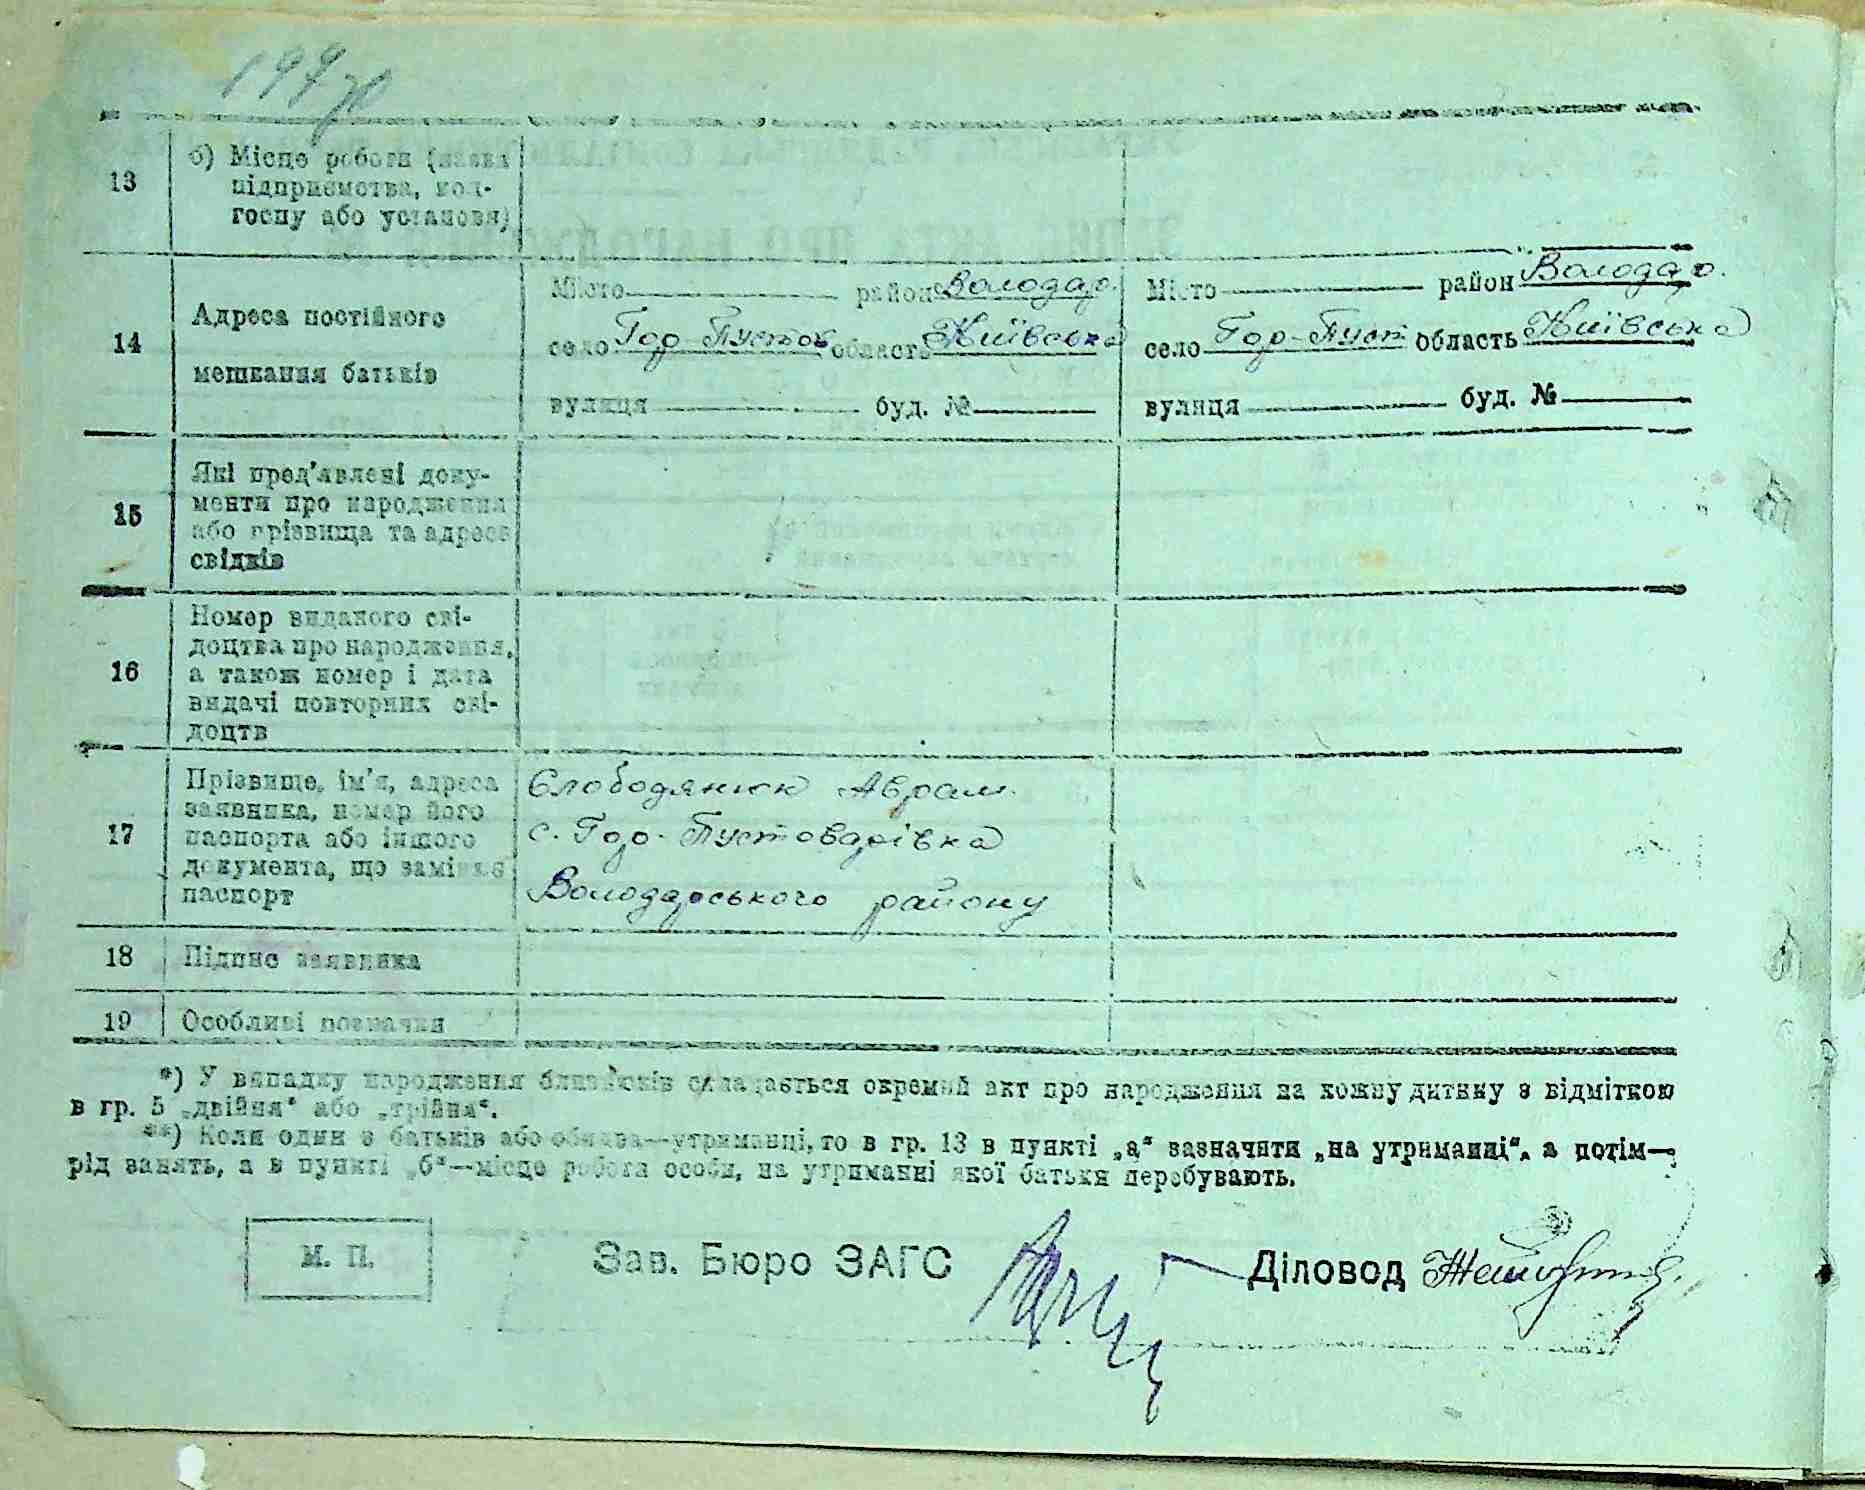 13
б) Місце роботи (назва
підприємства, кол-
госпу або установи)
14
Адреса постійного
мешкання батьків
Місто район Володар.
село Гор-Пустов область Київська
вулиця буд. №
Місто район Володар.
село Гор-Пуст область Київська
вулиця буд. №
15
Які пред'явлені доку-
менти про народження
або прізвища та адреса
свідків
16
Номер виданого сві-
доцтва про народження,
а також номер і дата
видачі повторних сві-
доцтв
17
Прізвище, ім'я, адреса
заявника, номер його
паспорта або іншого
документа, що заміняє
паспорт
Слободянюк Аврам.
с. Гор-Пустоварівка
Володарського району
18
Підпис заявника
19
Особливі позначки
*) У випадку народження близнюків складається окремий акт про народження на кожну дитину з відміткою
в гр. 5 „двійня“ або „трійня“.
**) Коли один з батьків або обидва—утриманці, то в гр. 13 в пункті „а“ зазначити „на утриманні“, а потім—
рід занять, а в пункті „б“—місце роботи особи, на утриманні якої батьки перебувають.
М. П.
Зав. Бюро ЗАГС
Діловод